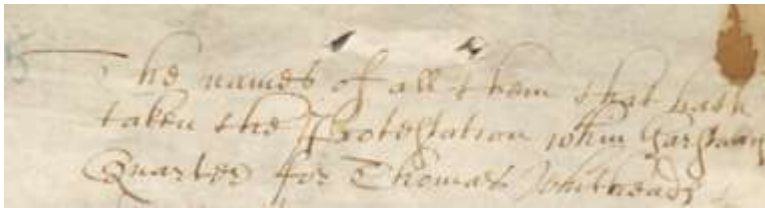 The names of all them that hath
taken the Protestation John
Quarter for Thomas Whithead